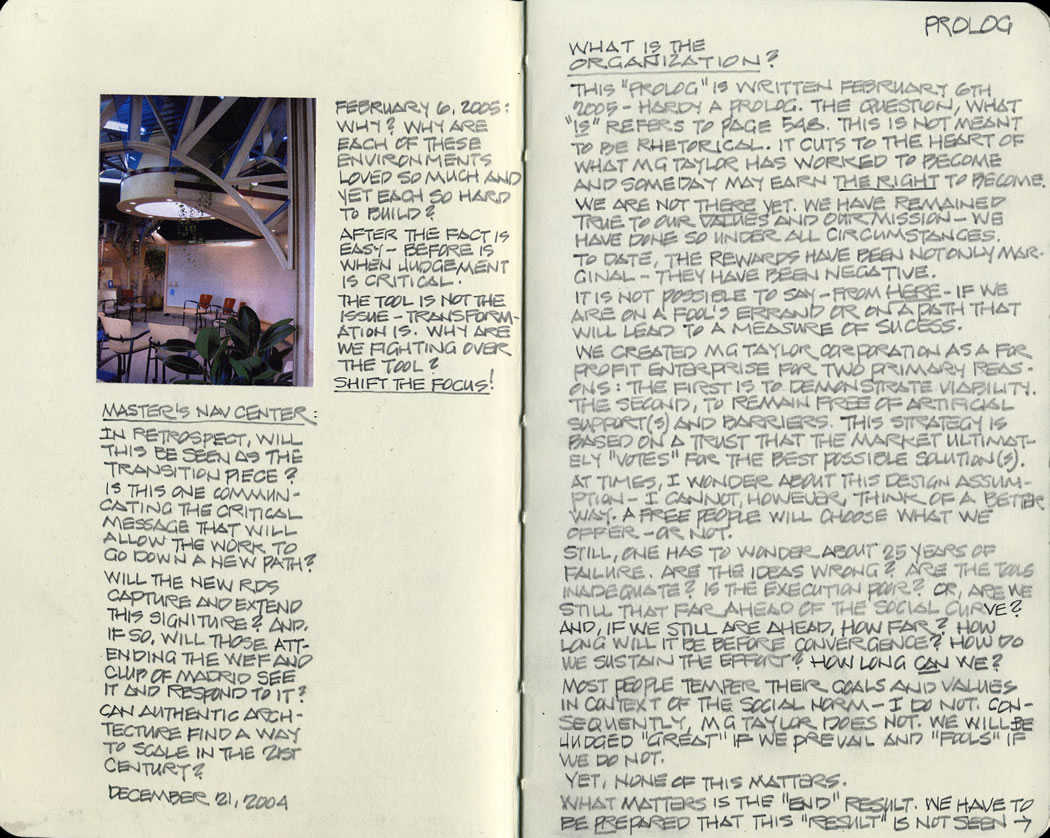 FEBRUARY 6, 2005:
WHY? WHY ARE
EACH OF THESE
ENVIRONMENTS
LOVED SO MUCH AND
YET EACH SO HARD
TO BUILD?
AFTER THE FACT IS
EASY - BEFORE IS
WHEN JUDGEMENT
IS CRITICAL.
THE TOOL IS NOT THE
ISSUE - TRANSFORM-
ATION IS. WHY ARE
WE FIGHTING OVER
THE TOOL?
SHIFT THE FOCUS!
MASTER'S NAV CENTER:
IN RETROSPECT, WILL
THIS BE SEEN AS THE
TRANSITION PIECE?
IS THIS ONE COMMUN-
CATING THE CRITICAL
MESSAGE THAT WILL
ALLOW THE WORK TO
GO DOWN A NEW PATH?
WILL THE NEW RDS
CAPTURE AND EXTEND
THIS SIGNITURE? AND,
IF SO, WILL THOSE ATT-
ENDING THE WEF AND
CLUP OF MADRID SEE
IT AND RESPOND TO IT?
CAN AUTHENTIC ARCH-
TECTURE FIND A WAY
TO SCALE IN THE 21ST
CENTURY?
DECEMBER 21, 2004
PROLOG
WHAT IS THE
ORGANIZATION?
THIS "PROLOG" IS WRITTEN FEBRUARY 6TH
2005 - HARDY A PROLOG. THE QUESTION, WHAT
"IS" REFERS TO PAGE 548. THIS IS NOT MEANT
TO BE RHETORICAL. IT CUTS TO THE HEART OF
WHAT MG TAYLOR HAS WORKED TO BECOME
AND SOMEDAY MAY EARN THE RIGHT TO BECOME.
WE ARE NOT THERE YET. WE HAVE REMAINED
TRUE TO OUR VALUES AND OUR MISSION - WE
HAVE DONE SO UNDER ALL CIRCUMSTANCES.
TO DATE, THE REWARDS HAVE BEEN NOT ONLY MAR-
GINAL - THEY HAVE BEEN NEGATIVE.
IT IS NOT POSSIBLE TO SAY - FROM HERE - IF WE
ARE ON A FOOL'S ERRAND OR ON A PATH THAT
WILL LEAD TO A MEASURE OF SUCESS.
WE CREATED MG TAYLOR CORPORATION AS A FOR
PROFIT ENTERPRISE FOR TWO PRIMARY REAS-
ONS: THE FIRST IS TO DEMONSTRATE VIABILITY.
THE SECOND, TO REMAIN FREE OF ARTIFICIAL
SUPPORT(S) AND BARRIERS. THIS STRATEGY IS
BASED ON A TRUST THAT THE MARKET ULTIMAT-
ELY "VOTES" FOR THE BEST POSSIBLE SOLUTION(S).
AT TIMES, I WONDER ABOUT THIS DESIGN ASSUM-
PTION - I CANNOT, HOWEVER, THINK OF A BETTER
WAY. A FREE PEOPLE WILL CHOOSE WHAT WE
OFFER - OR NOT.
STILL, ONE HAS TO WONDER ABOUT 25 YEARS OF
FAILURE. ARE THE IDEAS WRONG? ARE THE TOOLS
INADEQUATE? IS THE EXECUTION POOR? OR, ARE WE
STILL THAT FAR AHEAD OF THE SOCIAL CURVE?
AND, IF WE STILL ARE AHEAD, HOW FAR? HOW
LONG WILL IT BE BEFORE CONVERGENCE? HOW DO
WE SUSTAIN THE EFFORT? HOW LONG CAN WE?
MOST PEOPLE TEMPER THEIR GOALS AND VALUES
IN CONTEXT OF THE SOCIAL NORM - I DO NOT. CON-
SEQUENTLY, MG TAYLOR DOES NOT. WE WILL BE
JUDGED "GREAT" IF WE PREVAIL AND "FOOLS" IF
WE DO NOT.
YET, NONE OF THIS MATTERS.
WHAT MATTERS IS THE "END" RESULT. WE HAVE TO
BE PREPARED THAT THIS "RESULT" IS NOT SEEN →